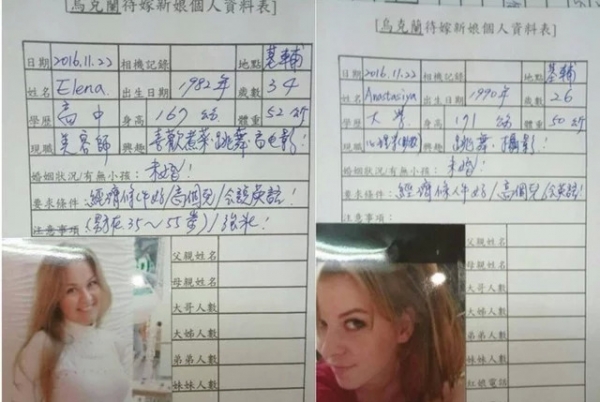 [烏克蘭待嫁新娘個人資料表]
日期 2016.11.22 相機記錄 地點 基輔
姓名 Elena. 出生日期 1982年 歲數 34
學歷 高中 身高 169 體重 52 斤
現職 美容師 興趣 喜歡煮菜、跳舞、看電影!
婚姻狀況/有無小孩: 未婚!
要求條件: 經濟條件好/高個兒/会說英語!
注意事項: 35~55歲)/強壯!
父親姓名
母親姓名
大哥人數
大姊人數
弟弟人數
妹妹人數
[烏克蘭待嫁新娘個人資料表]
日期 2016.11.22 相機記錄 地點 基輔
姓名 Anastasiya 出生日期 1990年 歲數 26
學歷 大學 身高 171 體重 50 斤
現職 興趣 跳舞、攝影!
婚姻狀況/有無小孩: 未婚!
要求條件: 經濟條件好/高個兒/会英語!
注意事項:
父親姓名
母親姓名
大哥人數
大姊人數
弟弟人數
妹妹人數
紅娘電話